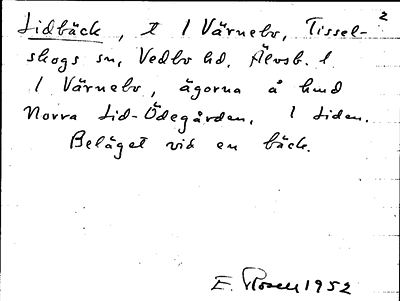 2
Lidbäck, t 1 Värnebo, Tissel-
skogs sn, Vedbo hd, Älvsb. l
1 Värnebo, ägorna å hmd
Norra Lid-Ödegården, 1 Liden.
Beläget vid en bäck.
E. Rosell 1952